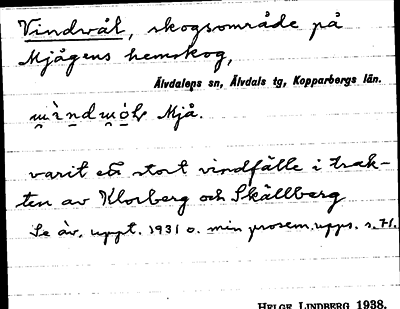 Vindvål, skogsområde på
Mjågens hemskog,
Älvdalens sn, Älvdals tg, Kopparbergs län.
Mjå.
varit ett stort vindfälle i trak-
ten av Klorberg och Skällberg
Se äv. uppt. 1931 o. min prosem.upps. s. 71.
HELGE LINDBERG 1938.